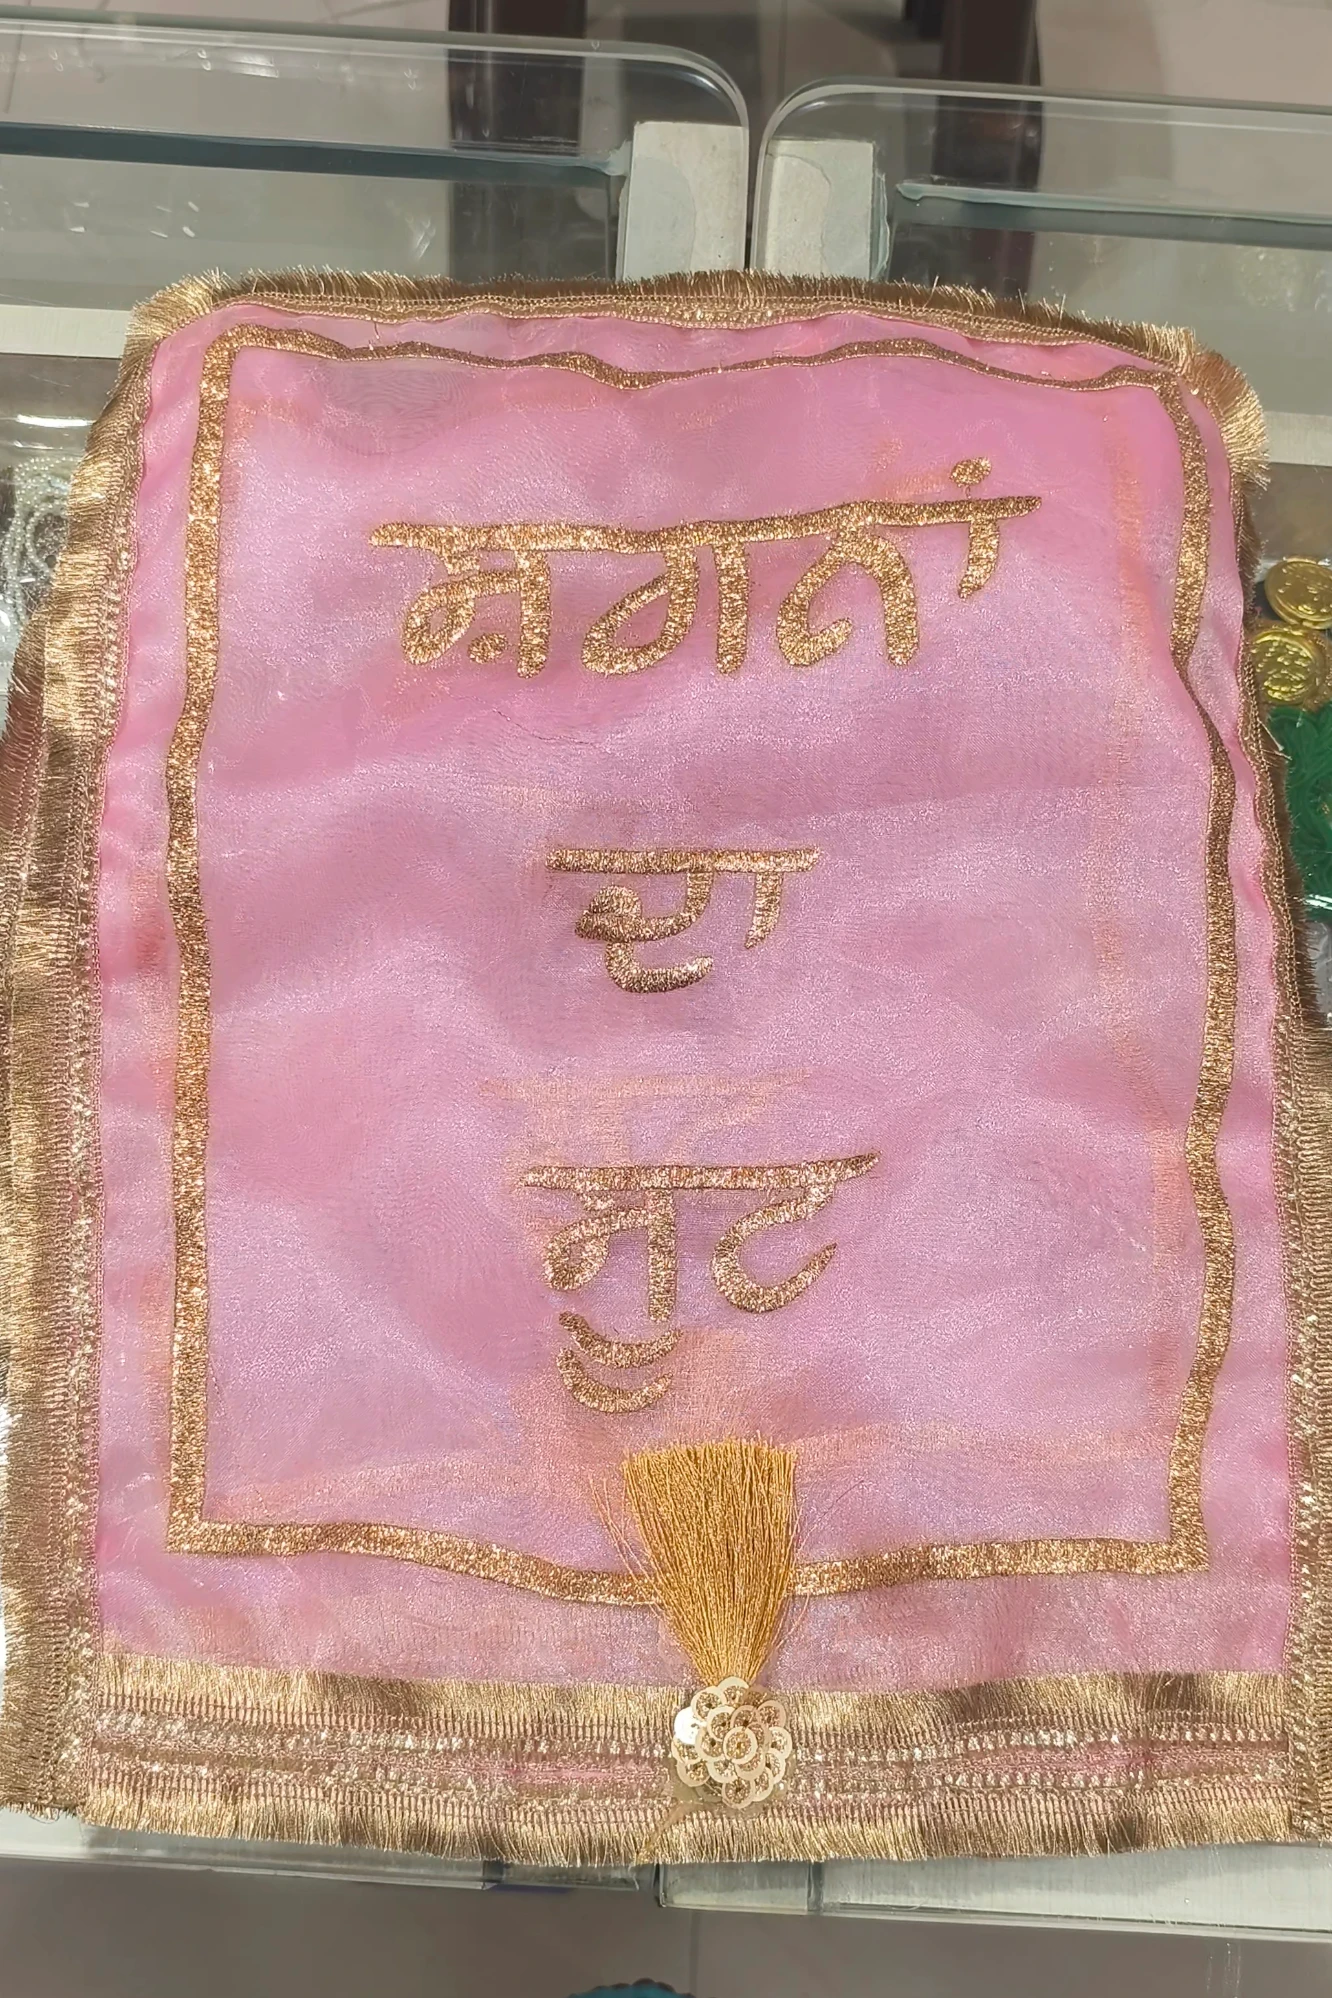 ਸ਼ਗਨਾਂ
ਦਾ
ਸੂਟ